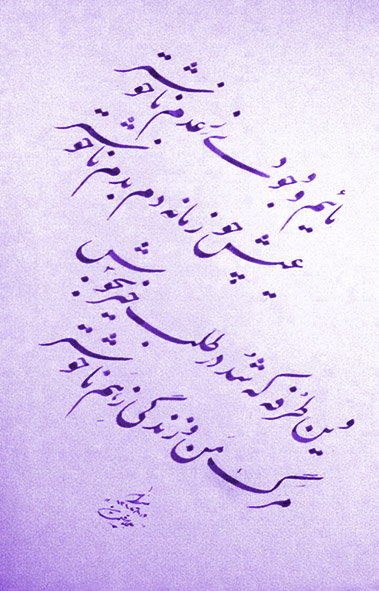 مائیم و وجودی ز عدم ناخوشتر
عیشی چو زمانه دم بدم ناخوشتر
وین طرفه که شد در طلب
مرگ من و زندگی ز هم ناخوشتر